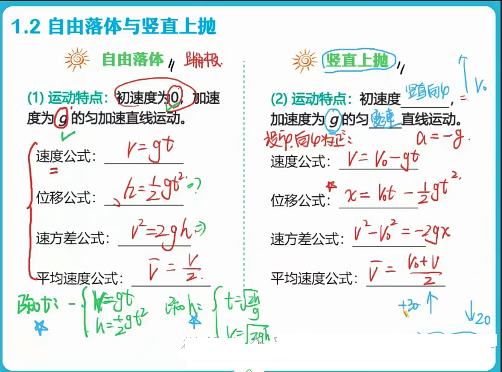 1.2 自由落体与竖直上抛
自由落体
(1) 运动特点：初速度为0，加速
度为g的匀加速直线运动。
速度公式： v=gt
位移公式： h=½gt²
速方差公式： v²=2gh
平均速度公式： v̄=v/2
已知t：{ v=gt
h=½gt²
已知h：{ t=√(2h/g)
v=√(2gh)
竖直上抛
(2) 运动特点：初速度 竖直向上，
v₀
加速度为g的匀变速直线运动。
a=-g
速度公式： v=v₀-gt
位移公式： x=v₀t-½gt²
速方差公式： v²-v₀²=-2gx
平均速度公式： v̄=(v₀+v)/2
+30 ↑
↓20